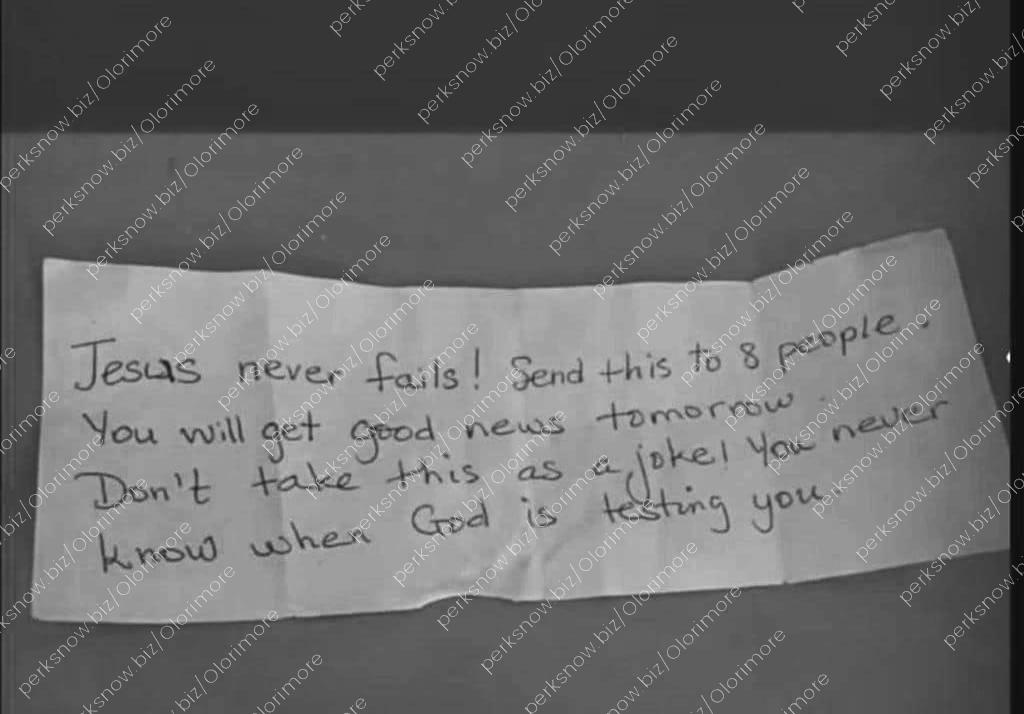 Jesus never fails! Send this to 8 people.
You will get good news tomorrow.
Don't take this as a joke! You never
know when God is testing you.
perksnow.biz/Olorimore